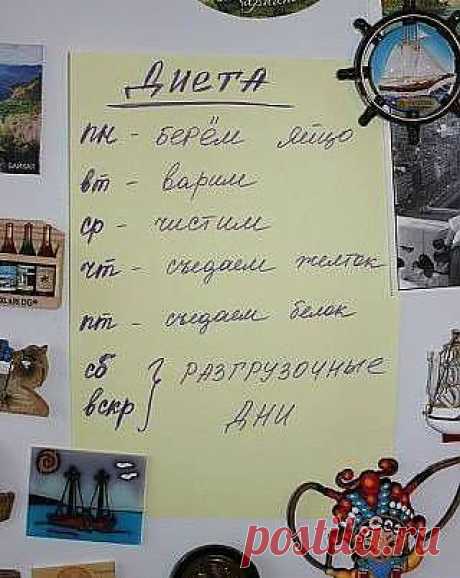 Диета
пн - берём яйцо
вт - варим
ср - чистим
чт - съедаем желток
пт - съедаем белок
сб } РАЗГРУЗОЧНЫЕ
вскр } ДНИ
БАЙКАЛ
postila.ru